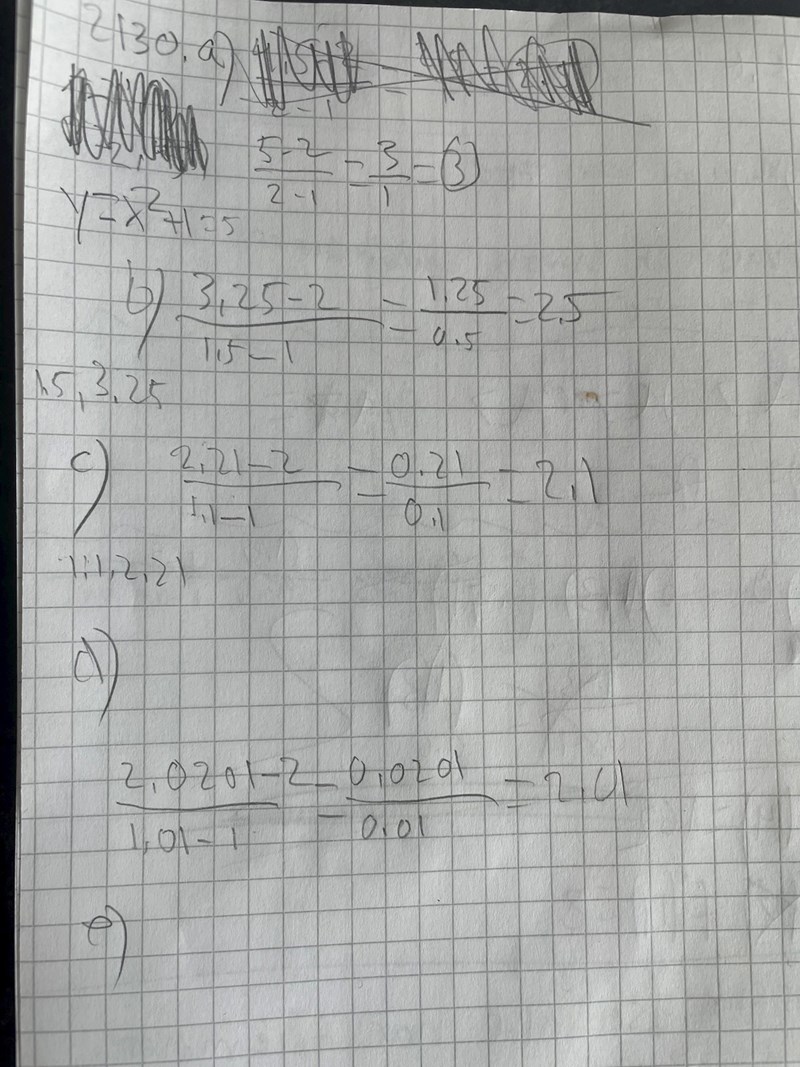 2130. a)
5-2/2-1 = 3/1 = 3
y=x²+1=5
b) 3,25-2/1,5-1 = 1,25/0.5 = 2.5
1.5, 3,25
c) 2,21-2/1,1-1 = 0.21/0.1 = 2,1
1.1, 2,21
d)
2,0201-2/1,01-1 = 0,0201/0.01 = 2,01
e)